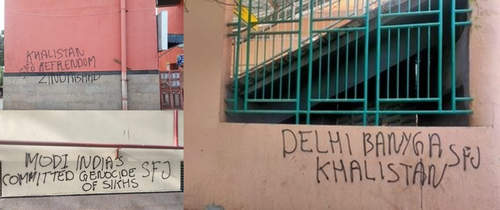 KHALISTAN
SFJ REFRENDUM
ZINDABAAD
MODI INDIA'S
COMMITTED GENOCIDE SFJ
OF SIKHS
DELHI BANYGA SFJ
KHALISTAN